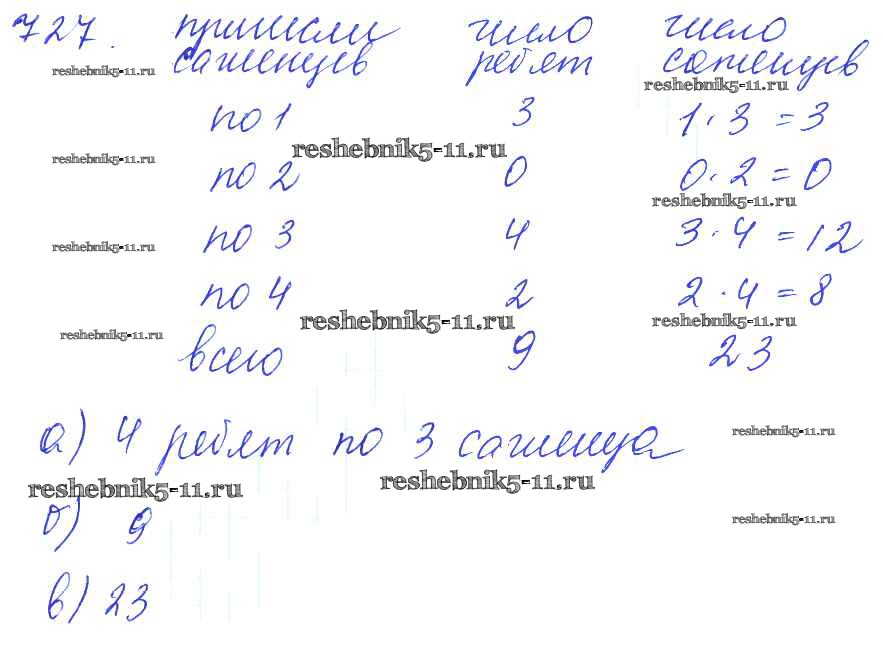 727. принесли число число
саженцев ребят саженцев
reshebnik5-11.ru
reshebnik5-11.ru
по 1 3 1 · 3 = 3
reshebnik5-11.ru
reshebnik5-11.ru
по 2 0 0 · 2 = 0
reshebnik5-11.ru
по 3 4 3 · 4 = 12
reshebnik5-11.ru
по 4 2 2 · 4 = 8
reshebnik5-11.ru
reshebnik5-11.ru
reshebnik5-11.ru
всего 9 23
а) 4 ребят по 3 саженца
reshebnik5-11.ru
reshebnik5-11.ru
reshebnik5-11.ru
б) 9
reshebnik5-11.ru
в) 23